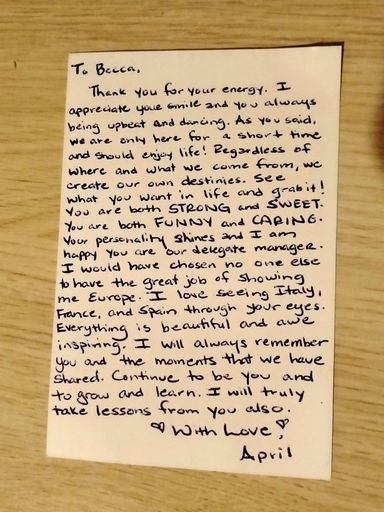 To Becca,
Thank you for your energy. I
appreciate your smile and you always
being upbeat and dancing. As you said,
we are only here for a short time
and should enjoy life! Regardless of
where and what we come from, we
create our own destinies. See
what you want in life and grab it!
You are both STRONG and SWEET.
You are both FUNNY and CARING.
Your personality shines and I am
happy you are our delegate manager.
I would have chosen no one else
to have the great job of showing
me Europe. I love seeing Italy,
France, and Spain through your eyes.
Everything is beautiful and awe
inspiring. I will always remember
you and the moments that we have
shared. Continue to be you and
to grow and learn. I will truly
take lessons from you also.
♡ With Love!
April